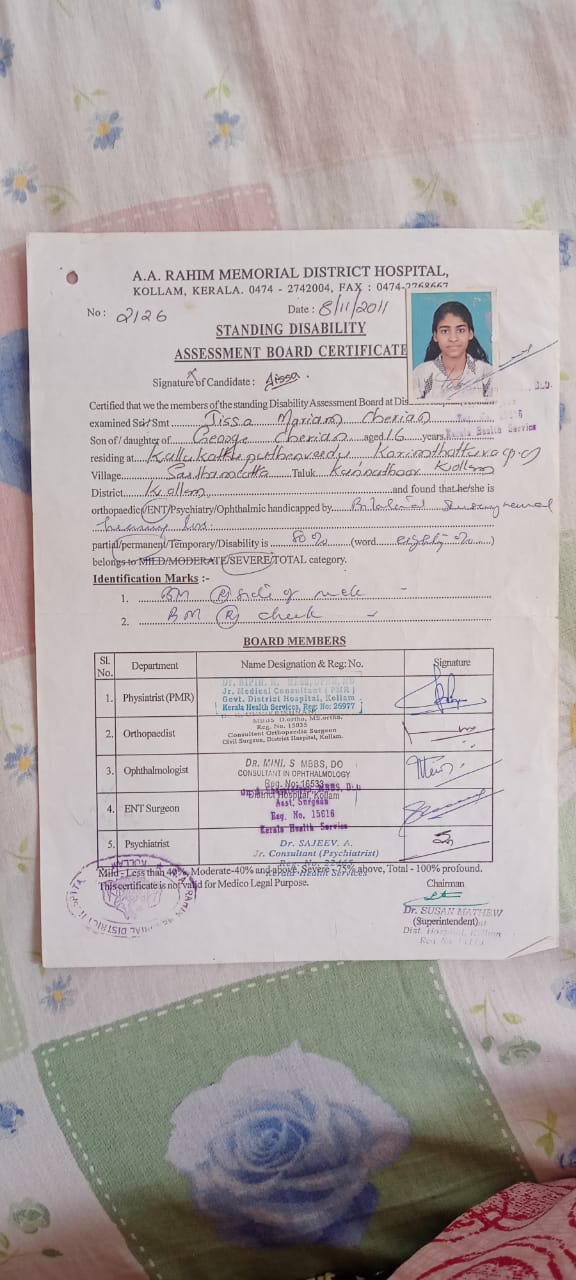 A.A. RAHIM MEMORIAL DISTRICT HOSPITAL,
KOLLAM, KERALA. 0474 - 2742004, FAX : 0474-2768667
No : 2126
Date : 8/11/2011
STANDING DISABILITY
ASSESSMENT BOARD CERTIFICATE
Signature of Candidate : Jissa.
Certified that we the members of the standing Disability Assessment Board at Dis
examined Sri/Smt Jissa Mariam Cherian
Reg. No. 15616
Son of / daughter of George Cherian aged 16 years, Kerala Health Service
residing at Karimthattuva (p.o)
Village Taluk Kunnathoor Kollam
District Kollam and found that he/she is
orthopaedic/ENT/Psychiatry/Ophthalmic handicapped by Bilateral Sensory neural
hearing loss
partial/permanent/Temporary/Disability is 80 % (word eighty %)
belongs to MILD/MODERATE/SEVERE/TOTAL category.
Identification Marks :-
1. BM (R) side of neck
2. BM (R) cheek
BOARD MEMBERS
Sl. No. Department Name Designation & Reg: No. Signature
1. Physiatrist (PMR)
Jr. Medical Consultant ( PMR )
Govt. District Hospital, Kollam
Kerala Health Services, Reg: No: 26977
2. Orthopaedist
MBBS D.ortho, MS.ortho.
Reg. No. 15035
Consultant Orthopaedic Surgeon
Civil Surgeon, District Hospital, Kollam.
3. Ophthalmologist
DR. MINI. S MBBS, DO
CONSULTANT IN OPHTHALMOLOGY
Reg. No: 16533
District Hospital, Kollam
4. ENT Surgeon
Asst. Surgeon
Reg. No. 15616
Kerala Health Service
5. Psychiatrist
Dr. SAJEEV. A.
Jr. Consultant (Psychiatrist)
Kerala Health Services
Mild - Less than 40%, Moderate-40% and above, Severe - 75% above, Total - 100% profound.
This certificate is not valid for Medico Legal Purpose.
Chairman
Dr. SUSAN MATHEW
(Superintendent)
Dist. Hospital, Kollam